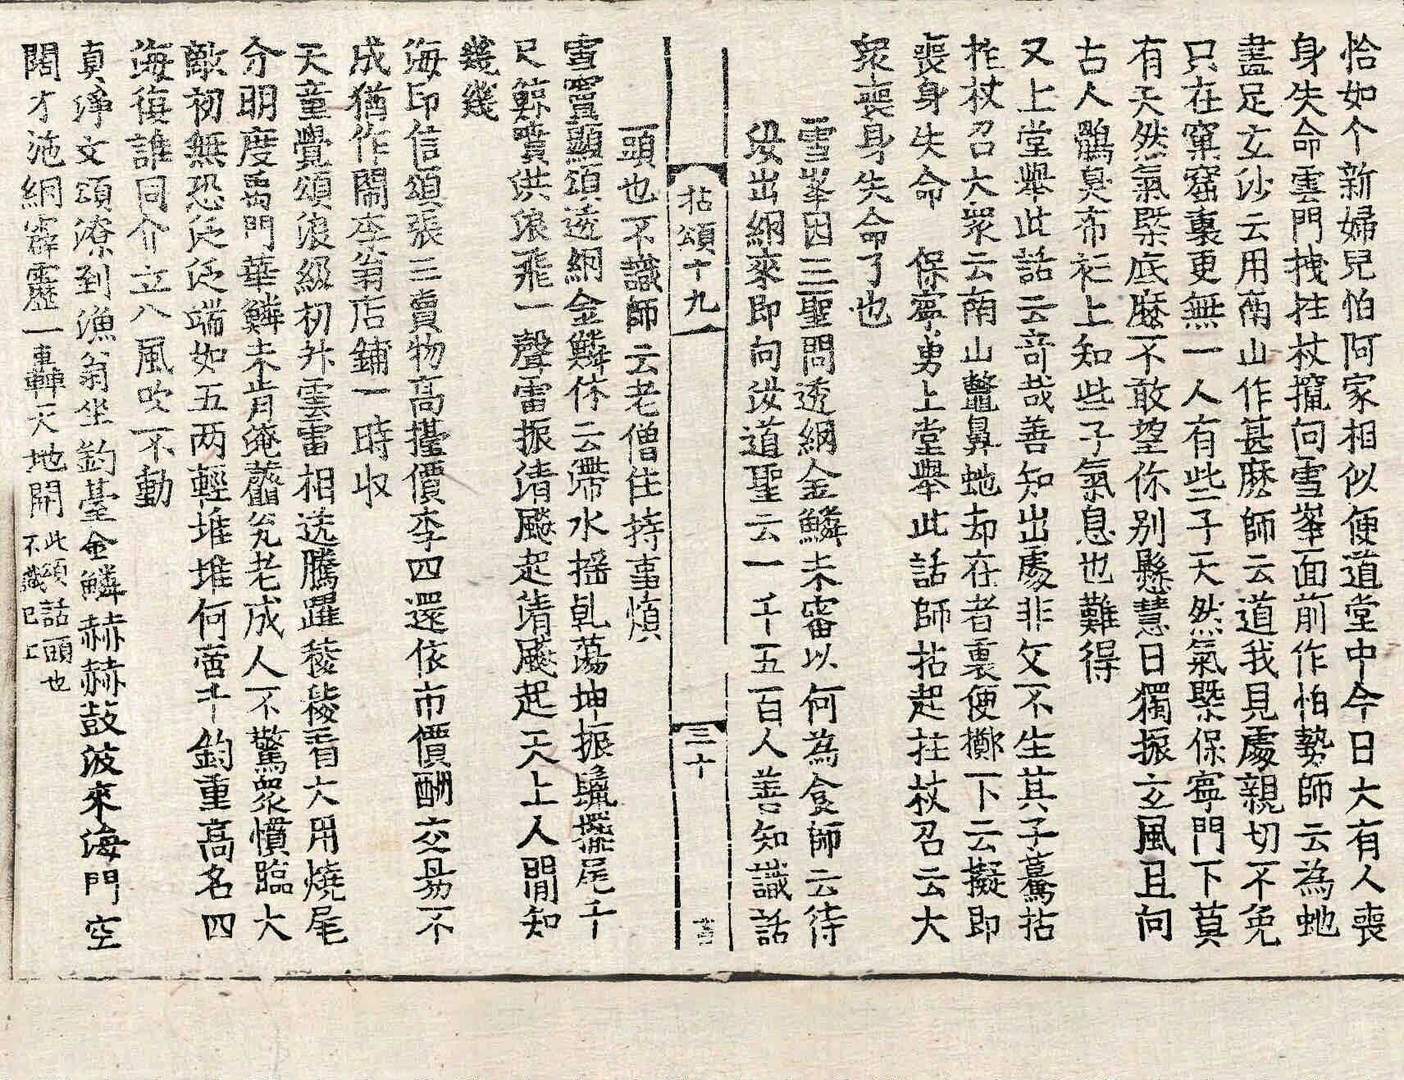 恰如个新婦兒怕阿家相似便道堂中今日大有人喪
身失命雲門拽拄杖攛向雪峯面前作怕勢師云為虵
盡足玄沙云用南山作甚麽師云道我見處親切不免
只在窠窟裏更無一人有些子天然氣槩保寧門下莫
有天然氣槩底麽不敢望你别懸慧日獨振玄風且向
古人鶻臭布衫上知些子氣息也難得
又上堂舉此話云竒哉善知出處非父不生其子驀拈
拄杖召大衆云南山鼈鼻虵却在者裏便擲下云擬即
喪身失命　保寧勇上堂舉此話師拈起拄杖召云大
衆喪身失命了也
雪峯因三聖問透網金鱗未審以何為食師云待
汝出網來即向汝道聖云一千五百人善知識話
拈頌十九
三十
頭也不識師云老僧住持事煩
雪竇顯頌透網金鱗休云滯水摇乾蕩坤振鬛擺尾千
尺鯨噴洪浪飛一聲雷振清飈起清飈起天上人間知
幾幾
海印信頌張三賣物高擡價李四還依市價酬交易不
成猶作鬧李翁店鋪一時収
天童覺頌浪級初升雲雷相送騰躍稜稜看大用燒尾
分明度禹門華鱗未肯淹虀瓮老成人不驚衆慣臨大
敵初無恐泛泛端如五两輕堆堆何啻千鈞重高名四
海復誰同介立八風吹不動
真淨文頌潦到漁翁坐釣臺金鱗赫赫鼓波來海門空
闊才施網霹靂一轟天地開此頌話頭也不識已上